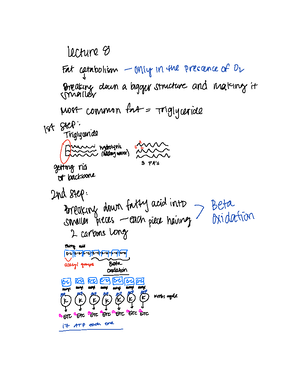 lecture 8
Fat catabolism — only in the prescence of O2
Breaking down a bigger structure and making it
smaller
Most common fat = Triglyceride
1st Step:
Triglyceride
hydrolysis
3 FA's
getting rid
of backbone
2nd Step:
Breaking down fatty acid into
smaller pieces — each piece having
2 carbons long
Beta
Oxidation
Fatty acid
Beta
Oxidation
K K K K K K K
Krebs cycle
ETC ETC ETC ETC ETC ETC ETC
17 ATP each one